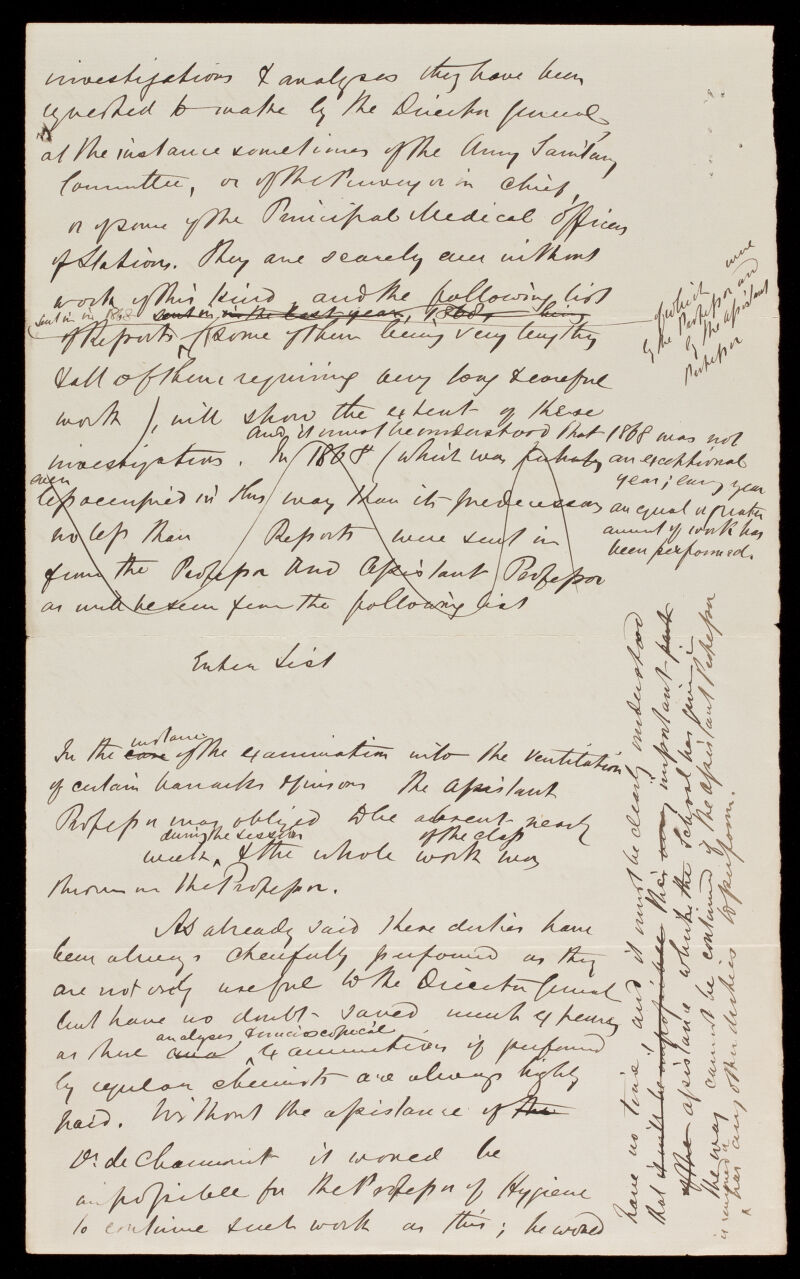 investigations & analyses they have been
requested to make by the Director General,
at the instance sometimes of the Army Sanitary
Committee, or of the Purveyor in Chief,
or of some of the Principal Medical Officers
of Stations. They are scarcely ever without
work of this kind, and the following list
sent in in 1868 sent in in the last year, 1868, being
of Reports (some of them being very lengthy
& all of them requiring very long & careful
work), will show the extent of these
and it must be understood that 1868 was not
investigations. In 1868 (which was probably
an exceptional
year; every year
even
less occupied in this way than its predecessors
an equal or greater
amount of work has
been performed.
no less than Reports were sent in
from the Professor and Assistant Professor
as will be seen from the following list
of which were
by the Professor and
by the Assistant
Professor
Enter List
instance
In the case of the examination into the ventilation
of certain barracks & prisons the Assistant
Professor was obliged to be absent nearly
during the session of the class
week, & the whole work was
thrown on the Professor.
As already said these duties have
been always cheerfully performed as they
are not only useful to the Director General
but have no doubt saved much expense
analyses & microscopical
as these examinations if performed
by regular chemists are always highly
paid. Without the assistance of the
Dr. de Chaumont it would be
impossible for the Professor of Hygiene
to continue such work as this; he would
have no time; and it must be clearly understood
that it will be impossible this very important part
of the assistance which the School has given
the War cannot be continued if the Assistant Professor
is removed or
has any other duties to perform.